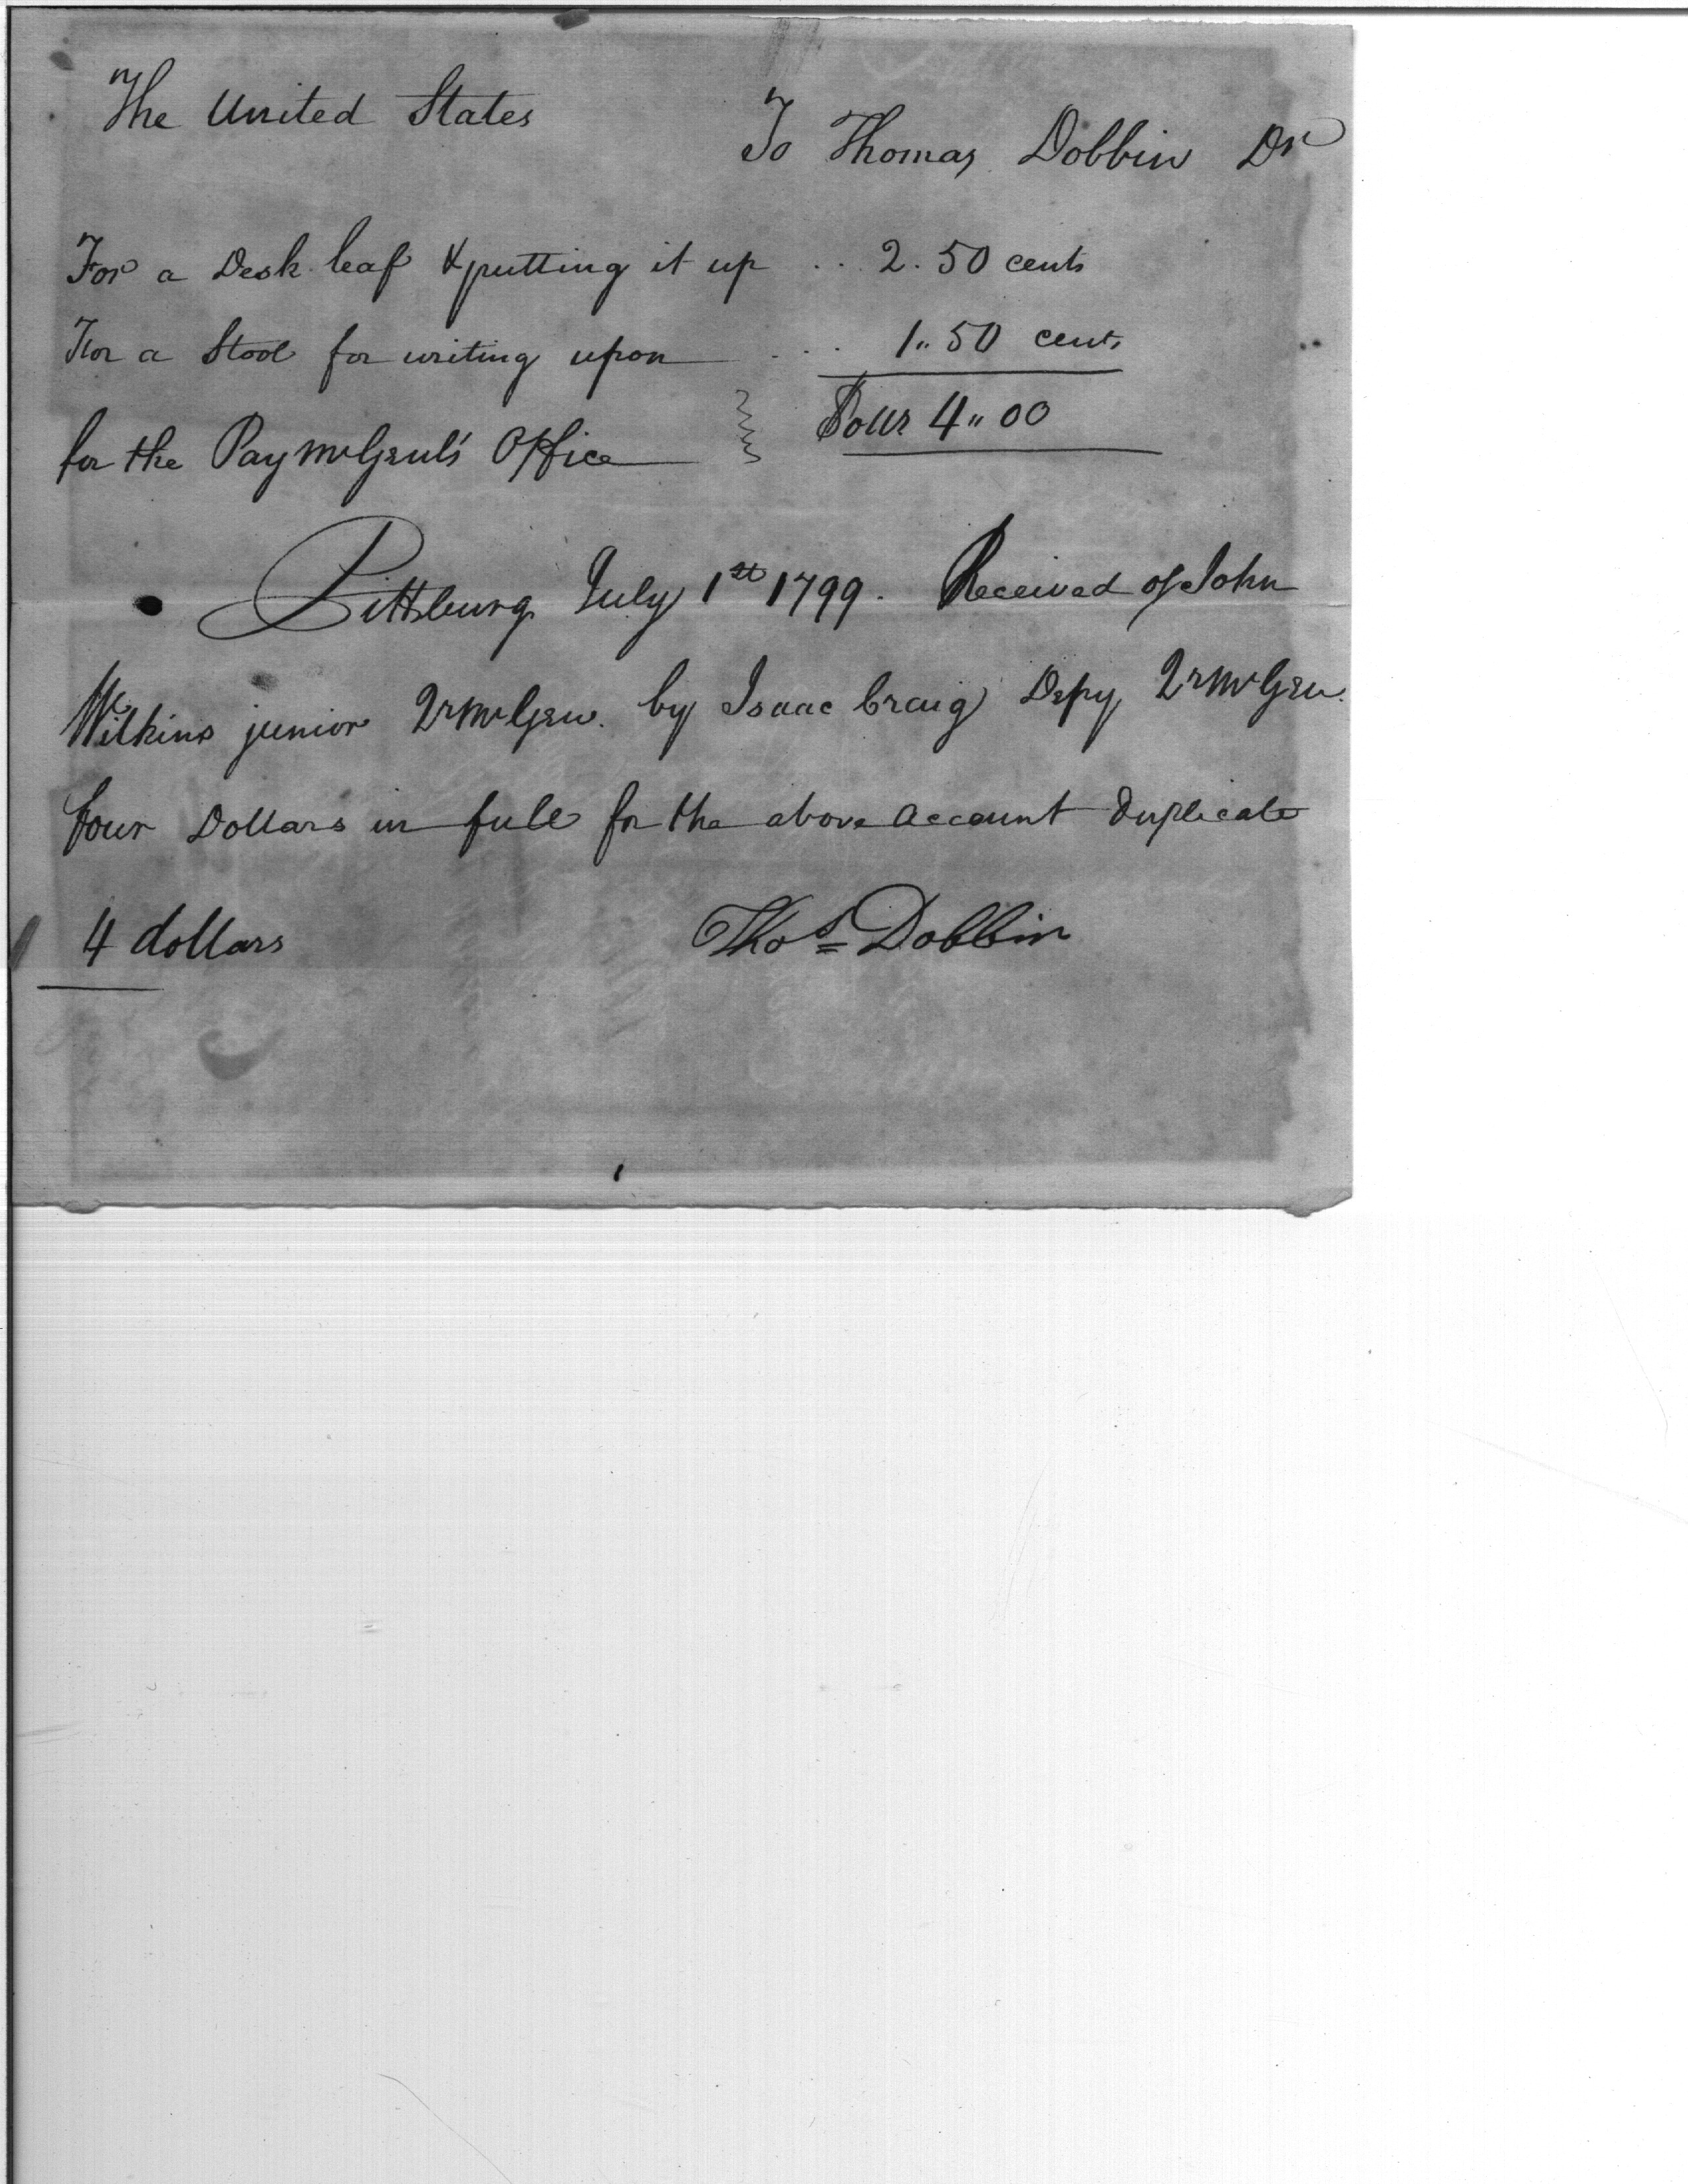 The United States
To Thomas Dobbin Dr
For a Desk leaf & putting it up ... 2.50 cents
For a Stool for writing upon ... 1"50 cents
for the PayMrGenls Office Dollr 4"00
Pittsburg July 1st 1799. Received of John
Wilkins junior QrMrGen. by Isaac Craig Depy QrMrGen.
four Dollars in full for the above Account Duplicate
4 dollars Thos Dobbin